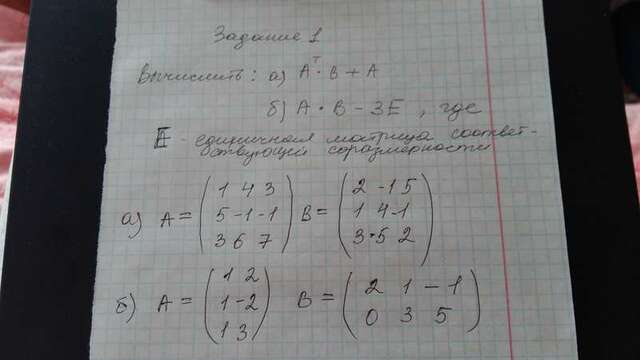 Задание 1
Вычислить: а) Aᵀ · B + A
б) A · B - 3E , где
E - единичная матрица соответ-
ствующей соразмерности
а) A = ( 1 4 3 ) B = ( 2 -1 5 )
( 5 -1 -1 ) ( 1 4 -1 )
( 3 6 7 ) ( 3 -5 2 )
б) A = ( 1 2 ) B = ( 2 1 -1 )
( 1 -2 ) ( 0 3 5 )
( 1 3 )